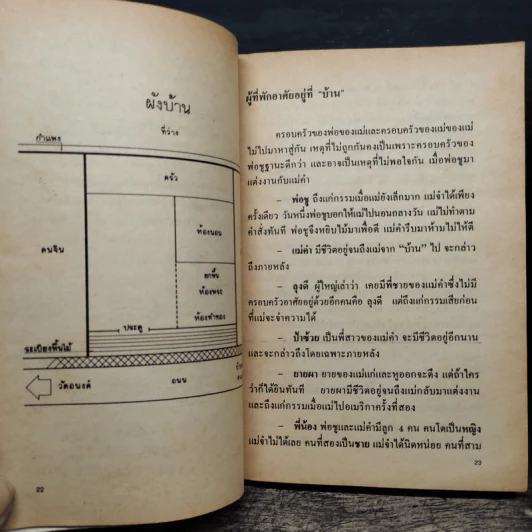 ผังบ้าน
ที่ว่าง
กำแพง
ครัว
ห้องนอน
คนจีน
ยกพื้น
ห้องพระ
ห้องทำทอง
ประตู
ระเบียงพื้นไม้
ถนน
วัดอนงค์
22
ผู้ที่พักอาศัยอยู่ที่ "บ้าน"
ครอบครัวของพ่อของแม่และครอบครัวของแม่ของแม่
ไม่ไปมาหาสู่กัน เหตุที่ไม่ถูกกันคงเป็นเพราะครอบครัวของ
พ่อชูฐานะดีกว่า และอาจเป็นเหตุที่ไม่พอใจกัน เมื่อพ่อชูมา
แต่งงานกับแม่คำ
– พ่อชู ถึงแก่กรรมเมื่อแม่ยังเล็กมาก แม่จำได้เพียง
ครั้งเดียว วันหนึ่งพ่อชูบอกให้แม่ไปนอนกลางวัน แม่ไม่ทำตาม
คำสั่งทันที พ่อชูจึงหยิบไม้มาเพื่อตี แม่คำรีบมาห้ามไม่ให้ตี
– แม่คำ มีชีวิตอยู่จนถึงแม่จาก "บ้าน" ไป จะกล่าว
ถึงภายหลัง
– ลุงดี ผู้ใหญ่เล่าว่า เคยมีพี่ชายของแม่คำซึ่งไม่มี
ครอบครัวอาศัยอยู่ด้วยอีกคนคือ ลุงดี แต่ถึงแก่กรรมเสียก่อน
ที่แม่จะจำความได้
– ป้าซ้วย เป็นพี่สาวของแม่คำ จะมีชีวิตอยู่อีกนาน
และจะกล่าวถึงโดยเฉพาะภายหลัง
– ยายผา ยายของแม่แก่และหูออกจะตึง แต่ถ้าใคร
ว่าก็ได้ยินทันที ยายผามีชีวิตอยู่จนถึงแม่กลับมาแต่งงาน
และถึงแก่กรรมเมื่อแม่ไปอเมริกาครั้งที่สอง
– พี่น้อง พ่อชูและแม่คำมีลูก 4 คน คนโตเป็นหญิง
แม่จำไม่ได้เลย คนที่สองเป็นชาย แม่จำได้นิดหน่อย คนที่สาม
23